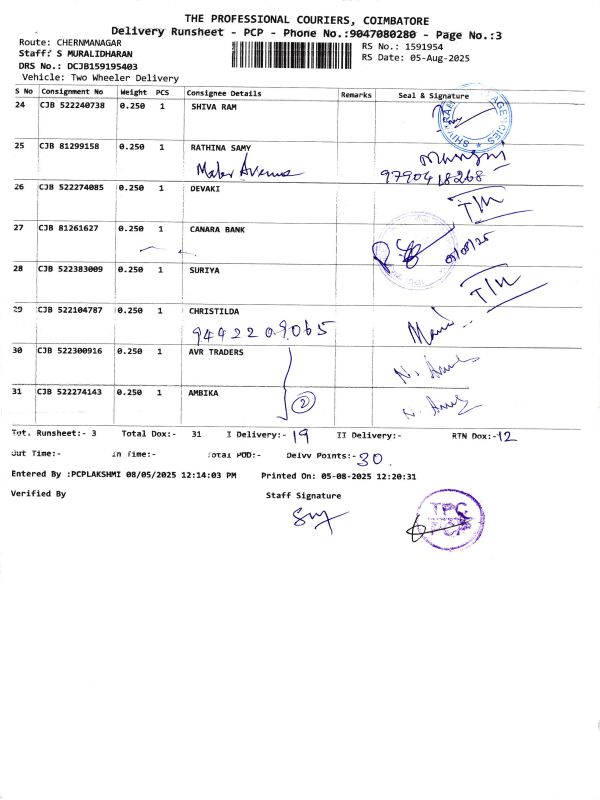 THE PROFESSIONAL COURIERS, COIMBATORE
Delivery Runsheet - PCP - Phone No.:9047080280 - Page No.:3
Route: CHERNMANAGAR
RS No.: 1591954
Staff: S MURALIDHARAN
RS Date: 05-Aug-2025
DRS No.: DCJB159195403
Vehicle: Two Wheeler Delivery
S No Consignment No Weight PCS Consignee Details Remarks Seal & Signature
24 CJB 522240738 0.250 1 SHIVA RAM
SHIVA RAM AGENCIES
25 CJB 81299158 0.250 1 RATHINA SAMY
Avenue
9790418268
26 CJB 522274085 0.250 1 DEVAKI
T/M
27 CJB 81261627 0.250 1 CANARA BANK
05/08/25
28 CJB 522383009 0.250 1 SURIYA
T/M
29 CJB 522104787 0.250 1 CHRISTILDA
9442209065
30 CJB 522300916 0.250 1 AVR TRADERS
31 CJB 522274143 0.250 1 AMBIKA
2
Tot. Runsheet:- 3 Total Dox:- 31 I Delivery:- 19 II Delivery:- RTN Dox:- 12
Out Time:- In Time:- Total POD:- Delvy Points:- 30.
Entered By :PCPLAKSHMI 08/05/2025 12:14:03 PM Printed On: 05-08-2025 12:20:31
Verified By Staff Signature
TPC
PCP